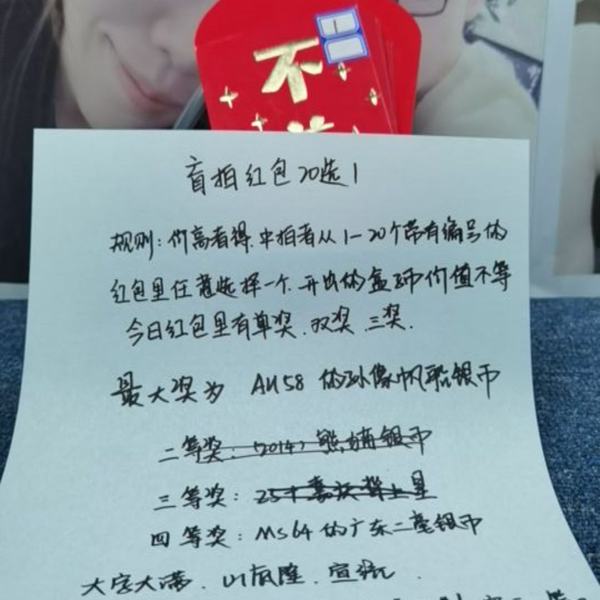 不
1
盲拍红包20选1
规则:价高者得.中拍者从1-20个带有编号的
红包里任意选择一个.开出的盒子币价值不等
今日红包里有单奖.双奖.三奖.
最大奖为 AU58 的孙像帆船银币
二等奖:(2014)熊猫银币
三等奖:
四等奖:MS64的广东二毫银币
大字大满.